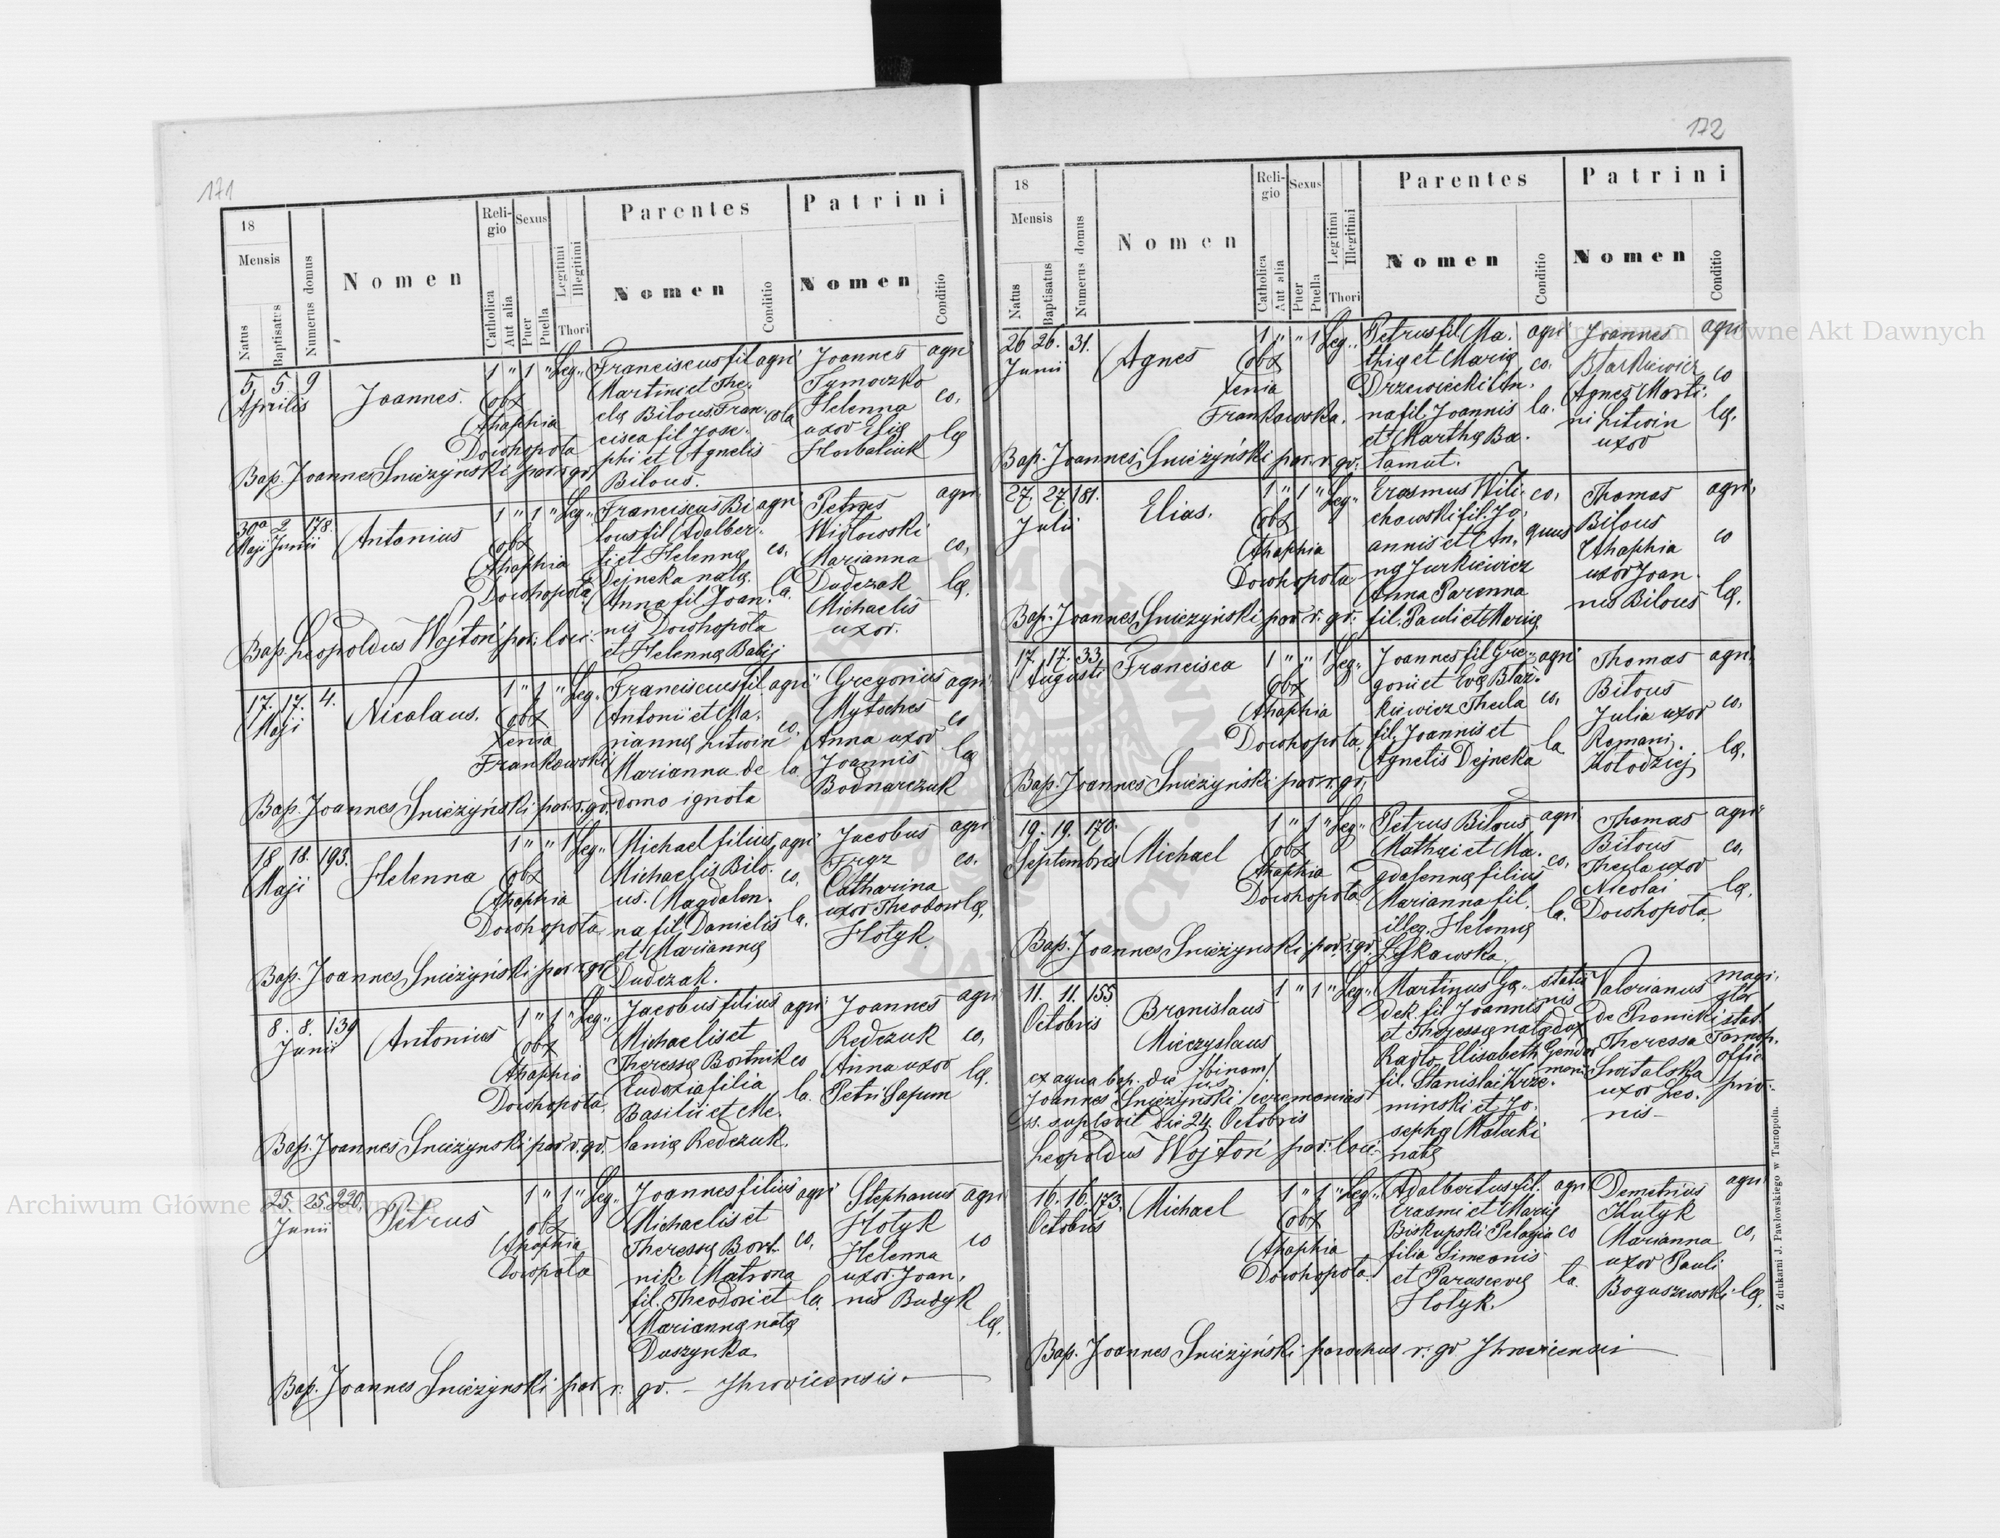 171
18
Mensis
Natus
Baptisatus
Numerus domus
Nomen
Religio
Catholica
Aut alia
Sexus
Puer
Puella
Legitimi
Illegitimi
Thori
Parentes
Nomen
Conditio
Patrini
Nomen
Conditio
5. 5. 9
Aprilis
Joannes.
1 " 1 " Leg.
obx
Ahaphia
Dowhopota
Franciscus fil
Martini et The-
clę Bilous Fran-
cisca fil Jose-
phi et Agnelis
Bilous.
agri
cola
Joannes
Tymoczko
Helenna
uxor Elię
Horbaliuk
agri
co,
lę
Bap. Joannes Snieżyński par. r. gr.
30a 2 178.
Maji Junii
Antonius
1 " 1 " Leg.
obx
Ahaphia
Dowhopota
Franciscus Bi
lous fil Adalber-
ti et Helennę
Dejneka natę.
Anna fil Joan-
nis Dowhopota
et Helennę Babij
agri
co,
la.
Petrus
Więtowski
Marianna
Dudczak
Michaelis
uxor.
agri
co,
lę.
Bap. Leopoldus Wojtoń par. loci.
17. 17. 4.
Maji
Nicolaus.
1 " 1 " Leg.
obx
Xenia
Frankowski
Franciscus fil
Antonii et Ma-
riannę Litwin
Marianna de
domo ignota
agri
co,
la
Gregorius
Mytsches
Anna uxor
Joannis
Bodnarczuk
agri
co
lę
Bap. Joannes Snieżyński par. r. gr.
18 18. 193.
Maji
Helenna
1 " " 1 Leg.
obx
Ahaphia
Dowhopota
Michael filius
Michaelis Bilo-
us. Magdalen-
na fil. Danielis
et Mariannę
Dudczak.
agri
co,
la.
Jacobus
Frąz
Catharina
uxor Theodori
Hotyk.
agri
co.
lę,
Bap. Joannes Snieżyński par. r. gr.
8. 8. 139
Junii
Antonius
1 " 1 " Leg.
obx
Ahaphia
Dowhopota
Jacobus filius
Michaelis et
Theressę Bortnik
Eudoxia filia
Basilii et Me-
lanię Redczuk.
agri
co
la.
Joannes
Redczuk
Anna uxor
Petri Sapum
agri
co,
lę.
Bap. Joannes Snieżynski par. r. gr.
25. 25. 220.
Junii
Petrus
1 " 1 " Leg.
obx
Ahaphia
Dowopota
Joannes filius
Michaelis et
Theressę Bort-
nik. Matrona
fil. Theodori et
Mariannę natę
Daszynka.
agri
co,
la.
Stephanus
Hotyk
Helenna
uxor Joan-
nis Budyk
agri
co
lę.
Bap. Joannes Snieżynski par. r. gr. – Ihrovicensis.
172
18
Mensis
Natus
Baptisatus
Numerus domus
Nomen
Religio
Catholica
Aut alia
Sexus
Puer
Puella
Legitimi
Illegitimi
Thori
Parentes
Nomen
Conditio
Patrini
Nomen
Conditio
26 26. 31.
Junii
Agnes
1 " " 1 Leg.
obx
Xenia
Frankowska.
Petrus fil Ma-
thię et Marię
Drzewiecki An-
na fil Joannis
et Marthę Ba-
tamut.
agri
co.
la.
Joannes
Błażkiewicz
Agnes Marti-
ni Litwin
uxor
agri
co
lę.
Bap. Joannes Snieżyński par. r. gr.
27. 27. 181.
Julii
Elias.
1 " 1 " Leg.
obx
Ahaphia
Dowhopota
Erasmus Wili-
chowski fil. Jo-
annis et An-
nę Jurkiewicz
Anna Parenna
fil. Pauli et Marię
co,
quus
Thomas
Bilous
Ahaphia
uxor Joan-
nis Bilous
agri,
co
lę.
Bap. Joannes Snieżyński par r. gr.
17. 17. 33.
Augusti
Francisca
1 " " 1 Leg.
obx
Ahaphia
Dowhopota.
Joannes fil Gre-
gorii et Evę Błaż-
kiewicz Thecla
fil. Joannis et
Agnetis Dejneka
agri
co,
la.
Thomas
Bilous
Julia uxor
Romani
Kołodziej
agri,
co,
lę.
Bap. Joannes Snieżyński par. r. gr.
19. 19. 170.
Septembris
Michael
1 " 1 " Leg.
obx
Ahaphia
Dowhopota
Petrus Bilous
Mathęi et Ma-
gdalennę filius
Marianna fil.
illeg. Helennę
Łykowska.
agri
co,
la.
Thomas
Bilous
Thecla uxor
Nicolai
Dowhopota
agri
co,
lę.
Bap. Joannes Snieżynski par. r. gr.
11. 11. 155
Octobris
Bronislaus
Mieczyslaus
/binom/
1 " 1 " Leg.
ex aqua bap. die
Joannes Snieżynski /ceremonias
ss. suplevit die 24. Octobris
Leopoldus Wojtoń par. loci
Martinus Gą-
dek fil Joannis
et Theressę natę
Radło. Elisabeth
fil. Stanislai Krze-
minski et Jo-
sephę Małecki
natę
Valerianus
de Pronicki
Theressa
Switalska
uxor Leo-
nis
16. 16. 173.
Octobris
Michael
1 " 1 " Leg.
obx
Ahaphia
Dowhopota.
Adalbertus fil.
Erasmi et Marię
Biskupski Pelagia
filia Simeonis
et Parascevę
Hotyk.
agri
co
la.
Demetrius
Hutyk
Marianna
uxor Pauli
Boguszewski
agri
co,
lę.
Bap. Joannes Snieżyński parochus r. gr Ihrovicensis
Z drukarni J. Pawłowskiego w Tarnopolu.
Archiwum Główne Akt Dawnych
Archiwum Główne Akt Dawnych